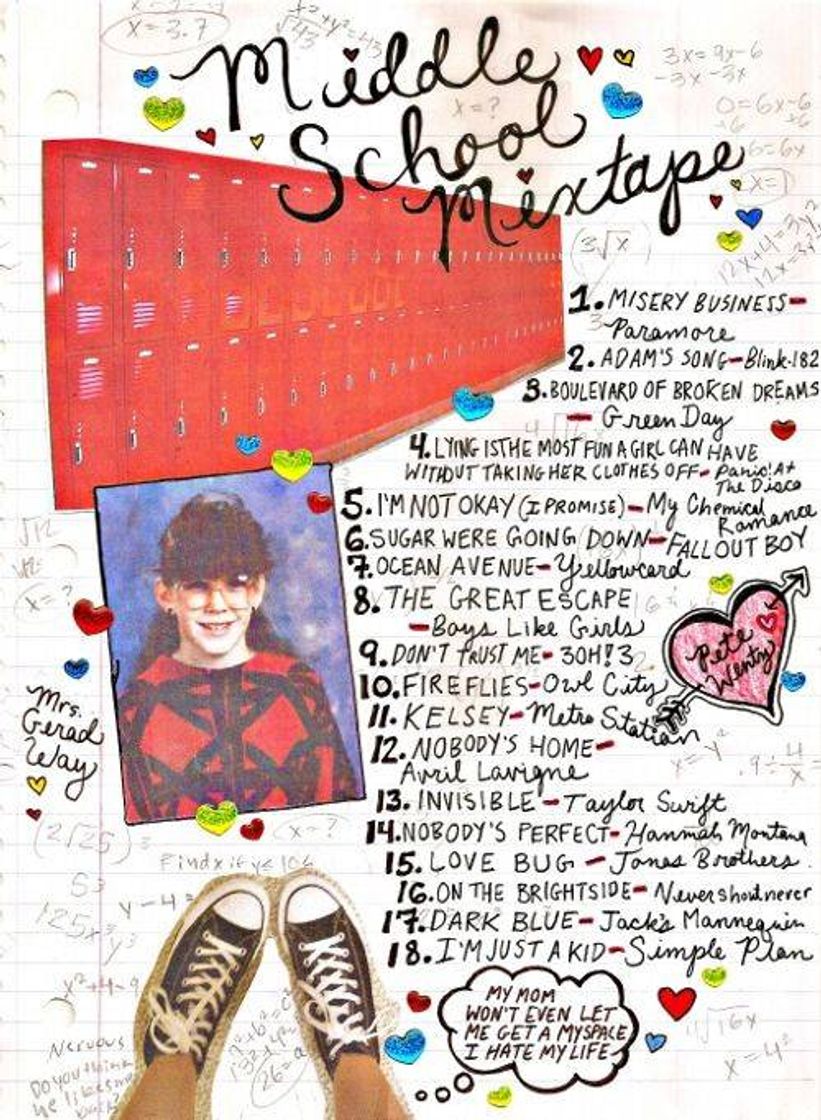 x = 3.7
Middle
School
Mixtape
x = ?
3x = 9x-6
-3x -3x
0 = 6x-6
+6 +6
6=6x
x=1
(3√x)
1. MISERY BUSINESS-
Paramore
2. ADAM'S SONG-Blink-182
3. BOULEVARD OF BROKEN DREAMS
- Green Day
4. LYING ISTHE MOST FUN A GIRL CAN HAVE
WITHOUT TAKING HER CLOTHES OFF- Panic! At
The Disco
5. I'M NOT OKAY (I PROMISE)-My Chemical
Romance
6. SUGAR WERE GOING DOWN-FALL OUT BOY
7. OCEAN AVENUE-Yellowcard
8. THE GREAT ESCAPE
-Boys Like Girls
9. DON'T TRUST ME- 3OH!3
10. FIREFLIES-Owl City
11. KELSEY-Metro Station
12. NOBODY'S HOME-
Avril Lavigne
13. INVISIBLE-Taylor Swift
14. NOBODY'S PERFECT-Hannah Montana
15. LOVE BUG - Jonas Brothers.
16. ON THE BRIGHTSIDE- Nevershoutnever
17. DARK BLUE-Jack's Mannequin
18. I'M JUST A KID-Simple Plan
Pete
Wentz
√12
x= ?
Mrs.
Gerad
Way
(2√25)
x = ?
Find x if y≤106
5³
y-4=
MY MOM
WON'T EVEN LET
ME GET A MYSPACE
I HATE MY LIFE
Nervous
Do you think
he likes me
x=4²